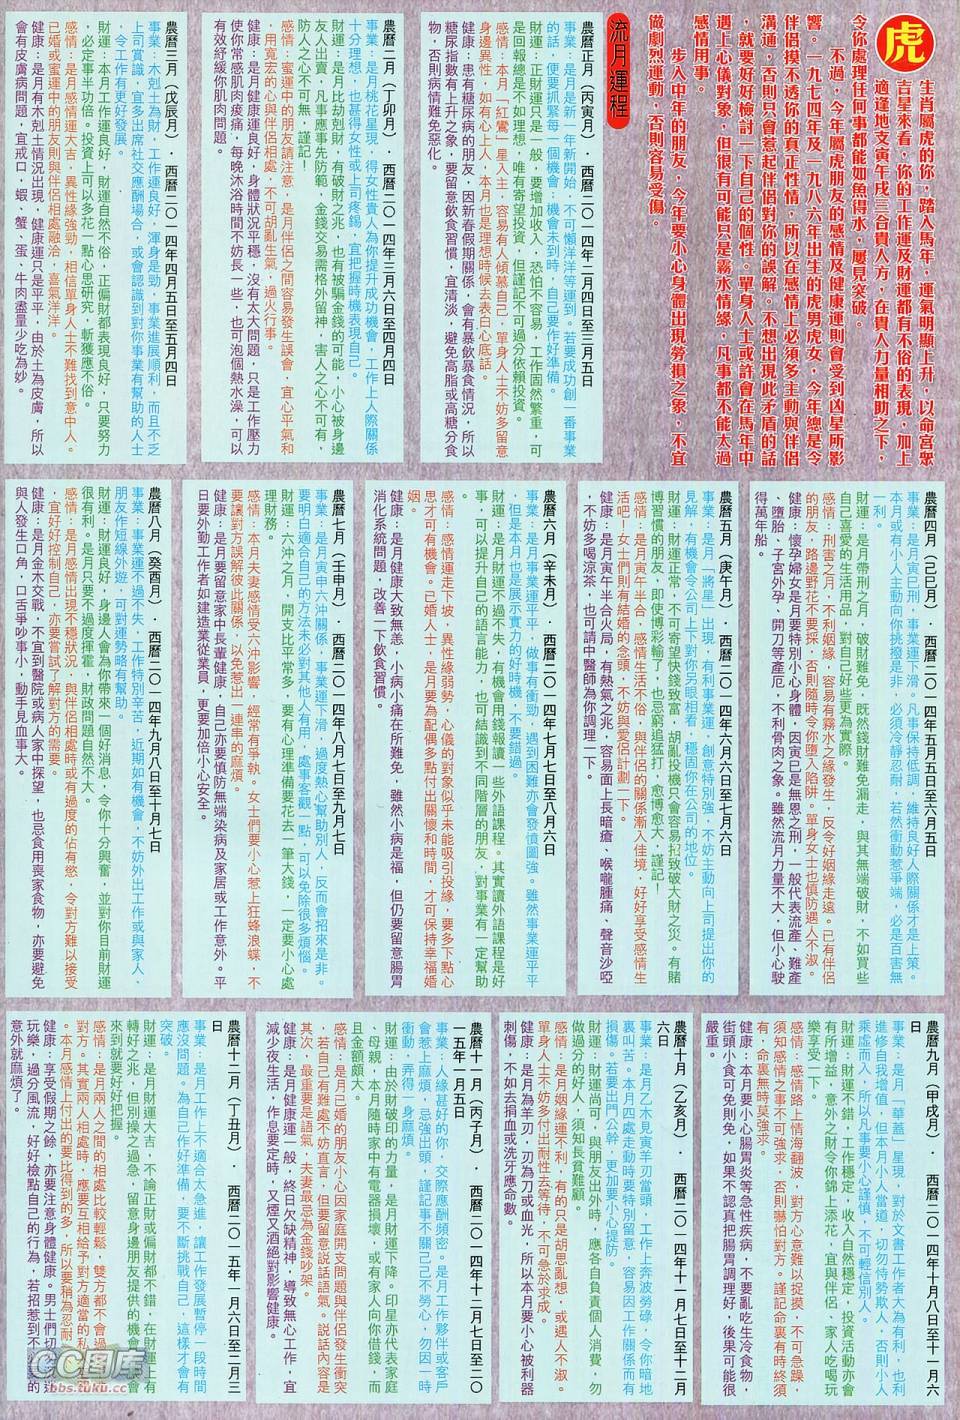 虎
生肖屬虎的你，踏入馬年，運氣明顯上升，以命宮眾
吉星來看，你的工作運及財運都有不俗的表現，加上
適逢地支寅午戌三合貴人方，在貴人力量相助之下，
令你處理任何事都能如魚得水，屢見突破。
不過，今年屬虎朋友的感情及健康運則會受到凶星所影
響。一九七四年及一九八六年出生的虎男虎女，今年總是令
伴侶摸不透你的真正性情，所以在感情上必須多主動與伴侶
溝通，否則只會惹起伴侶對你的誤解。不想出現此矛盾的話
，就要好好檢討一下自己的個性。單身人士或許會在馬年中
遇上心儀對象，但很有可能只是霧水情緣，凡事都不能太過
感情用事。
步入中年的朋友，今年要小心身體出現勞損之象，不宜
做劇烈運動，否則容易受傷。
流月運程
農曆正月（丙寅月）．西曆二０一四年二月四日至三月五日
事業：是月新一年新開始，不可懶洋洋等運到。若要成功創一番事業
的話，便要抓緊每一個機會，機會未到時，自己要作好準備。
財運：正財運只是一般，要增加收入，恐怕不容易，工作固然繁重，可
是回報總是不如理想，唯有寄望投資，但謹記不可過分依賴投資。
感情：本月「紅鸞」星入主，容易有人傾慕自己，單身人士不妨多留意
身邊異性，如有心上人，本月也是理想時候去表白心底話。
健康：患有糖尿病的朋友，因新春假期關係，會有暴飲暴食情況，所以
糖尿指數有上升之象，要留意飲食習慣，宜清淡，避免高脂或高糖分食
物，否則病情難免惡化。
農曆二月（丁卯月）．西曆二０一四年三月六日至四月四日
事業：是月桃花星現，得女性貴人為你提升成功機會，工作上人際關係
十分理想，也甚得女性或上司疼錫，宜把握時機表現自己。
財運：是月比劫剋財，有破財之兆，也有被騙金錢的可能，小心被身邊
友人出賣，凡事應事先防範，金錢交易需格外留神，害人之心不可有，
防人之心不可無，謹記！
感情：蜜運中的朋友請注意，是月伴侶之間容易發生誤會，宜心平氣和
，用寬宏的心與伴侶相處，不可胡亂生氣，過火行事。
健康：是月健康運良好，身體狀況平穩，沒有太大問題，只是工作壓力
使你常感肌肉疲痛，每晚沐浴時間不妨長一些，也可泡個熱水澡，可以
有效紓緩你肌肉問題。
農曆三月（戊辰月）．西曆二０一四年四月五日至五月四日
事業：木剋土為財，工作運良好，渾身是勁，事業進展順利，而且不乏
上司賞識，宜多出席社交應酬場合，或會認識到對你事業有幫助的人士
，令工作有更好發展。
財運：本月工作運良好，財運自然不俗，正偏財都表現良好，只要努力
，必定事半功倍。投資上可以多花一點心思研究，斬獲應不俗。
感情：是月感情運大吉，異性緣強勁，相信單身人士不難找到意中人。
已婚或蜜運中的朋友與伴侶相處融洽，喜氣洋洋。
健康：是月有木剋土情況出現，健康運只是平平，由於土為皮膚，所以
會有皮膚病問題，宜戒口，蝦、蟹、蛋、牛肉盡量少吃為妙。
農曆四月（己巳月）．西曆二０一四年五月五日至六月五日
事業：是月寅巳刑，事業運下滑。凡事保持低調，維持良好人際關係才是上策。
本月或有小人主動向你挑撥是非，必須冷靜忍耐，若然衝動惹爭端，必是百害無
一利。
財運：是月帶刑之月，破財難免，既然錢財難免漏走，與其無端破財，不如買些
自己喜愛的生活用品，對自己好些更為實際。
感情：刑害之月，不利姻緣，容易有霧水之緣發生，反令好姻緣走遠。已有伴侶
的朋友，路邊野花不要採，否則隨時令你墮入陷阱。單身女士也慎防遇人不淑。
健康：懷孕婦女是月要特別小心身體，因寅巳是無恩之刑，一般代表流產、難產
、墮胎、子宮外孕、開刀等產厄，不利骨肉之象。雖然流月力量不大，但小心駛
得萬年船。
農曆五月（庚午月）．西曆二０一四年六月六日至七月六日
事業：是月「將星」出現，有利事業運，創意特別強，不妨主動向上司提出你的
見解，有機會令公司上下對你另眼相看，穩固你在公司的地位。
財運：財運正常，不可寄望快錢致富，胡亂投機只會容易招致破大財之災。有賭
博習慣的朋友，即使博彩輸了，也忌窮追猛打，愈博愈大，謹記！
感情：是月寅午半合，感情生活不俗，與伴侶的關係漸入佳境，好好享受感情生
活吧！女士們則有結婚的念頭，不妨與愛侶計劃一下。
健康：是月寅午半合火局，有熱氣之兆，容易面上長暗瘡、喉嚨腫痛、聲音沙啞
，不妨多喝涼茶，也可請中醫師為你調理一下。
農曆六月（辛未月）．西曆二０一四年七月七日至八月六日
事業：是月事業運平平，做事有衝勁，遇到困難亦會發憤圖強。雖然事業運平平
，但是本月也是展示實力的好時機，不要錯過。
財運：是月財運平平，有機會用錢報讀一些外語課程。其實讀外語課程是好
事，可以提升自己的語言能力，也可結識到不同階層的朋友，對事業有一定幫助
。
感情：感情運走下坡，異性緣弱勢，心儀的對象似乎未能吸引投緣，要多下點心
思才可有機會。已婚人士，是月要為配偶多點付出關懷和時間，才可保持幸福婚
姻。
健康：是月健康大致無恙，小病小痛在所難免，雖然小病是福，但仍要留意腸胃
消化系統問題，改善一下飲食習慣。
農曆七月（壬申月）．西曆二０一四年八月七日至九月七日
事業：是月寅申六沖關係，事業運下滑，過度熱心幫助別人，反而會招來是非。
要明白適合自己的方法未必對其他人有用，處事客觀一點，可以免除很多煩惱。
財運：六沖之月，開支比平常多，要有心理準備要花去一筆大錢，一定要小心處
理財務。
感情：本月夫妻感情受六沖影響，經常有爭執。女士們要小心惹上狂蜂浪蝶，不
要讓對方誤解彼此關係，以免惹出一連串的麻煩。
健康：是月要留意家中長輩健康，自己亦要慎防無端染病及家居或工作意外。平
日要外勤工作者如建造業從業員，更要加倍小心安全。
農曆八月（癸酉月）．西曆二０一四年九月八日至十月七日
事業：事業運不過不失，工作特別辛苦，近期如有機會，不妨外出工作或與家人、
朋友作短線外遊，可對運勢略有幫助。
財運：財運良好，身邊人會為你帶來一個好消息，令你十分興奮，並對你目前財運
很有利。是月只要不過度揮霍，財政問題自然不大。
感情：是月感情出現不穩狀況，與伴侶相處時或有過度的佔有慾，令對方難以接受
，宜好好控制自己，亦要嘗試了解對方的需要。
健康：是月金木交戰，不宜到醫院或病人家中探望，也忌食用喪家食物，亦要避免
與人發生口角，口舌爭吵事小，動手見血事大。
農曆九月（甲戌月）．西曆二０一四年十月八日至十一月六
日
事業：是月「華蓋」星現，對於文書工作者大為有利，也利
進修自我增值，但本月小人當道，切勿恃勢欺人，否則小人
乘虛而入，所以凡事要小心謹慎，不可輕信別人。
財運：財運不錯，工作穩定，收入自然穩定，投資活動亦會
有所增益，意外之財令你錦上添花，宜與伴侶、家人吃喝玩
樂享受一下。
感情：是月感情路上情海翻波，對方心意難以捉摸，不可急躁，
須知感情之事不可強求，否則嚇怕對方。謹記命裏有時終須
有，命裏無時莫強求。
健康：本月要小心腸胃炎等急性疾病，不要亂吃生冷食物，
街頭小食可免則免，如果不認真把腸胃調理好，後果可能很
嚴重。
農曆十月（乙亥月）．西曆二０一四年十一月七日至十二月
六日
事業：是月乙木見寅羊刃當頭，工作上奔波勞碌，令你暗地
裏叫苦。本月四處走動時要特別留意，容易因工作關係而有
損傷。若要出門公幹，更加要小心提防。
財運：財運尚可，與朋友出外時，應各自負責個人消費，勿
做過分的好人，須知長貧難顧。
感情：是月姻緣運不利，有的只是胡思亂想，或遇人不淑。
單身人士不妨多付出耐性去等待，不可急於求成。
健康：是月為羊刃，刃為刀或血光，所以本月要小心被利器
刺傷，不如去捐血或洗牙應命數。
農曆十一月（丙子月）．西曆二０一四年十二月七日至二０
一五年一月五日
事業：人緣甚好的你，交際應酬頻密。是月工作夥伴或客戶
會惹上麻煩，忌強出頭，謹記事不關己己不勞心，勿因一時
衝動，弄得一身麻煩。
財運：由於財破印的力量，是月財運下降。印星亦代表家庭
、母親，本月隨時家中有電器損壞，或有家人向你借錢，而
且金額頗大。
感情：是月已婚的朋友小心因家庭開支問題與伴侶發生衝突
，若自己有難處不妨直言，但要留意說話語氣。說話內容是
其次，最重要是語氣，夫妻最忌為金錢吵架。
健康：是月健康運一般，終日欠缺精神，導致無心工作，宜
減少夜生活，作息要定時，又煙又酒絕對影響健康。
農曆十二月（丁丑月）．西曆二０一五年一月六日至二月三
日
事業：是月工作上不適合太急進，讓工作發展暫停一段時間
應沒問題。為自己作好準備，要不斷挑戰自己，這樣才會有
突破。
財運：是月財運大吉，不論正財或偏財都不錯，在財運上有
轉好之兆，但別操之過急，留意身邊朋友提供的機會，機會
來到就要好好把握。
感情：是月兩人之間的相處比較輕鬆，雙方都不會過
對方。其實兩人相處時，應要互相給予對方適當的私
。本月感情上付出的要比得到的多，所以要稍為忍耐
健康：享受假期之餘，亦要注意身體健康。男士們切
玩樂，過分風流，好好檢點自己的行為，若招惹到不的
意外就麻煩了。
CC图库
bbs.tuku.cc